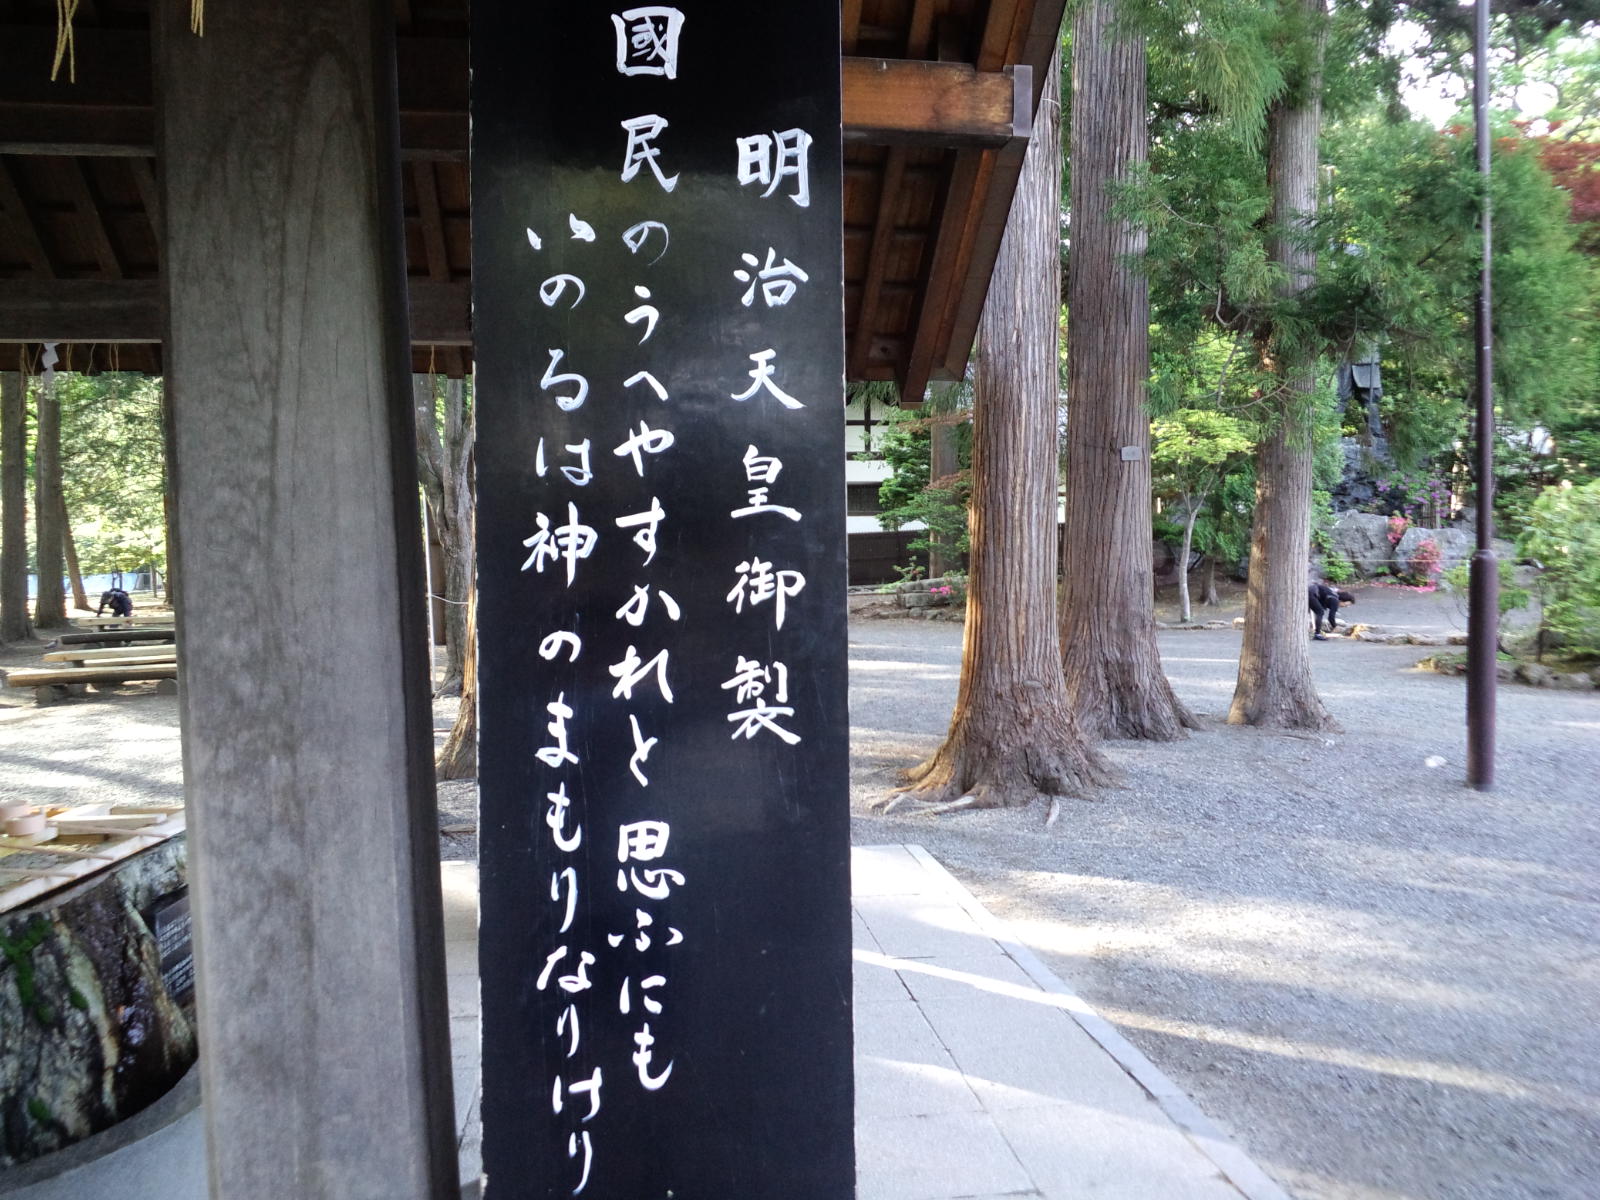 明治天皇御製
國民のうへやすかれと思ふにも
いのるは神のまもりなりけり